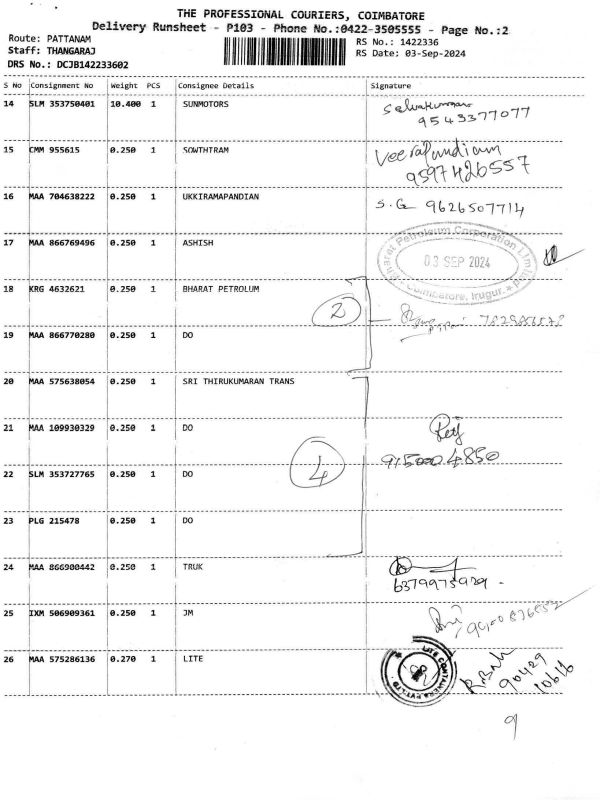 THE PROFESSIONAL COURIERS, COIMBATORE
Delivery Runsheet - P103 - Phone No.:0422-3505555 - Page No.:2
Route: PATTANAM
RS No.: 1422336
Staff: THANGARAJ
RS Date: 03-Sep-2024
DRS No.: DCJB142233602
S No Consignment No Weight PCS Consignee Details Signature
14 SLM 353750401 10.400 1 SUNMOTORS Selvakumar
9543377077
15 CMM 955615 0.250 1 SOWTHTRAM Veerapandian
9597426557
16 MAA 704638222 0.250 1 UKKIRAMAPANDIAN S.G 9626507714
17 MAA 866769496 0.250 1 ASHISH
Bharat Petroleum Corporation Limited
03 SEP 2024
Coimbatore, Irugur.
18 KRG 4632621 0.250 1 BHARAT PETROLUM
2
19 MAA 866770280 0.250 1 DO
20 MAA 575638054 0.250 1 SRI THIRUKUMARAN TRANS
21 MAA 109930329 0.250 1 DO
9150004850
22 SLM 353727765 0.250 1 DO
4
23 PLG 215478 0.250 1 DO
24 MAA 866900442 0.250 1 TRUK
6379975929.
25 IXM 506909361 0.250 1 JM
26 MAA 575286136 0.270 1 LITE
LITE CONTAINERS PVT.LTD.
90429
10616
9